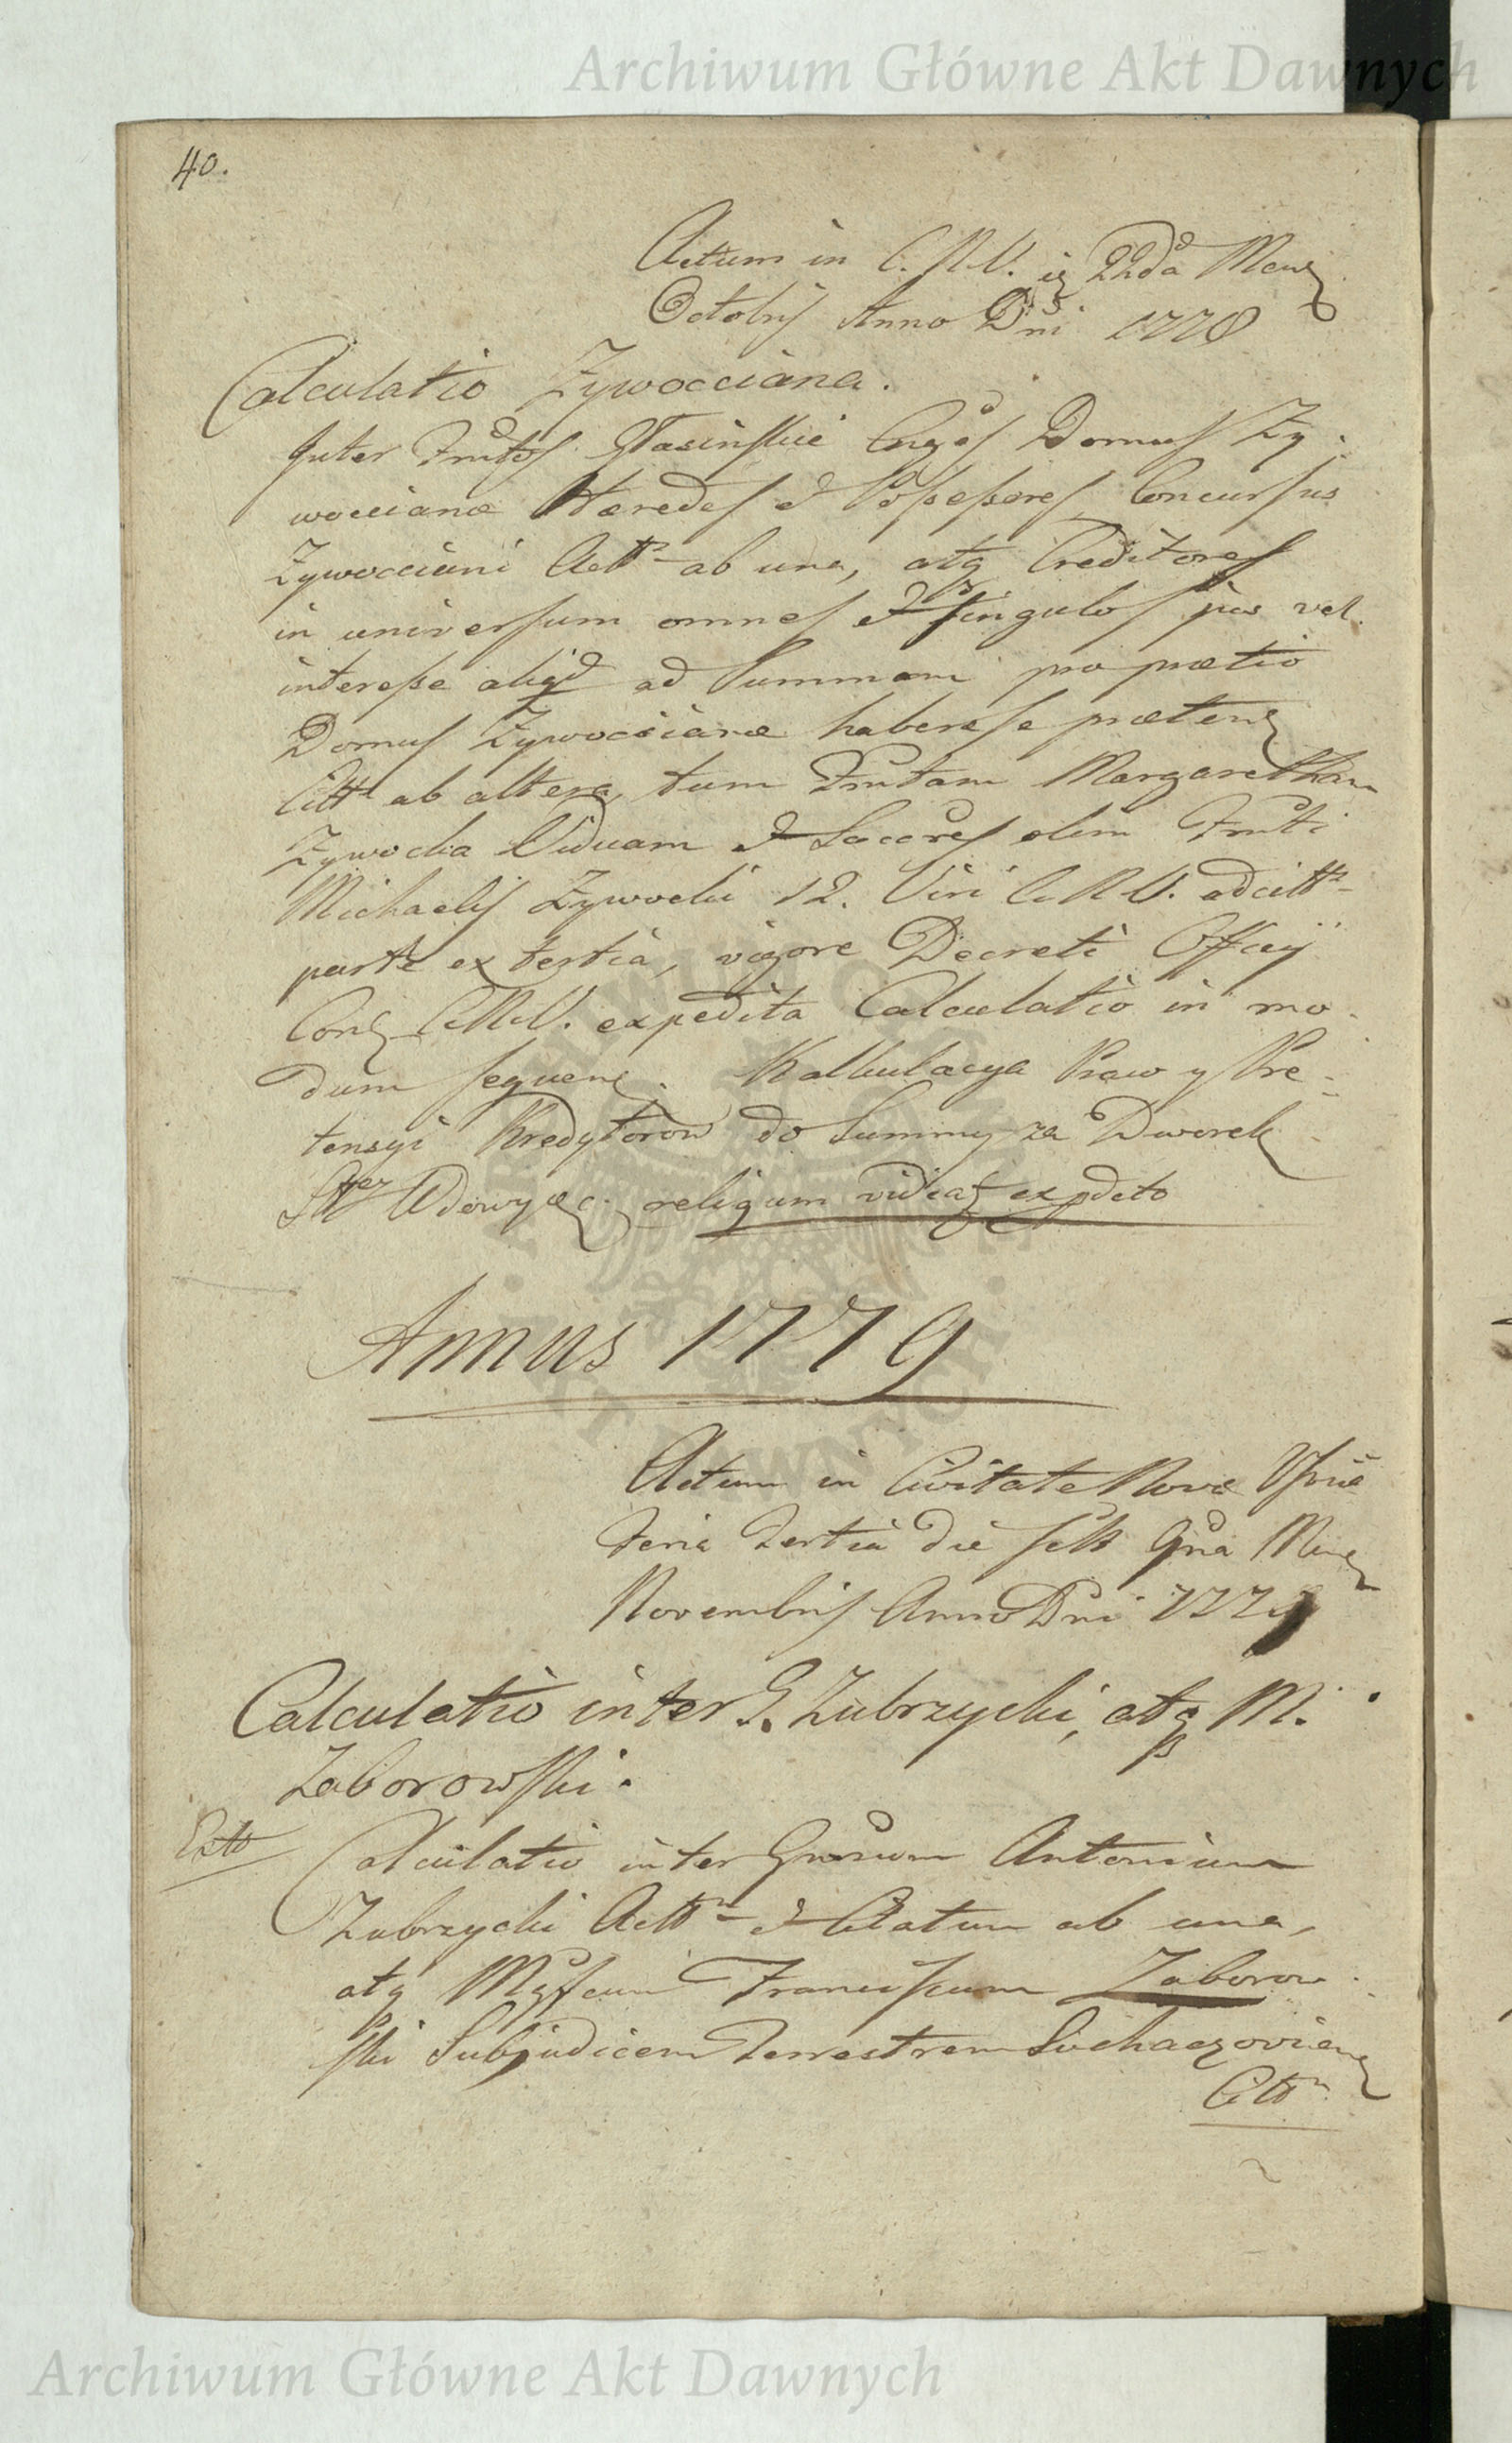 Archiwum Główne Akt Dawnych
40.
Actum in C. N. V. 22da Mens
Octobris Anno Dni 1778
Calculatio Zywocciana.
Inter Frutos Cnges Domus Zy-
wocciana Haeredes & Possessores Concursus
Zywocciani Actt ab una, atq Creditores
in universum omnes & singulos jus vel
interesse aliqd ad Summam pro praetio
Domus Zywoccianae habere se praetens
Citt ab altera, tum Frutam Margaretham
Zywocka Viduam & Succres olim Fruti
Michaelis Zywocki 12. Viri C. N. V. adcitt
parte ex tertia, vigore Decreti Officij
Cons C. N. V. expedita Calculatio in mo-
dum sequens. Kalkulacya Praw y Pre-
tensyi Kredytorow do Summy za Dworek
reliqum videas ex pdcto
Annus 1779
Actum in Civitate Nova Vsviae
Feria Tertia die scilt 9na Mens
Novembris Anno Dni 1779
Calculatio inter G. Zubrzycki, atq M.
Zaborowski.
Extt
Calculatio inter Gnrosum Antonium
Zubrzycki Actt & Citatum ab una,
atq Mgfcum Franciscum Zaborow-
ski Subjudicem Terrestrem Sochaczoviens
Citt
Archiwum Główne Akt Dawnych